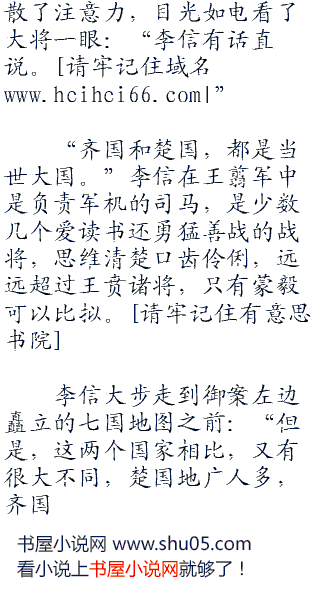 散了注意力，目光如电看了
大将一眼：“李信有话直
说。[请牢记住域名
www.hcihci66.com|”
“齐国和楚国，都是当
世大国。”李信在王翦军中
是负责军机的司马，是少数
几个爱读书还勇猛善战的战
将，思维清楚口齿伶俐，远
远超过王贲诸将，只有蒙毅
可以比拟。[请牢记住有意思
书院]
李信大步走到御案左边
矗立的七国地图之前：“但
是，这两个国家相比，又有
很大不同，楚国地广人多，
齐国
书屋小说网 www.shu05.com
看小说上书屋小说网就够了！